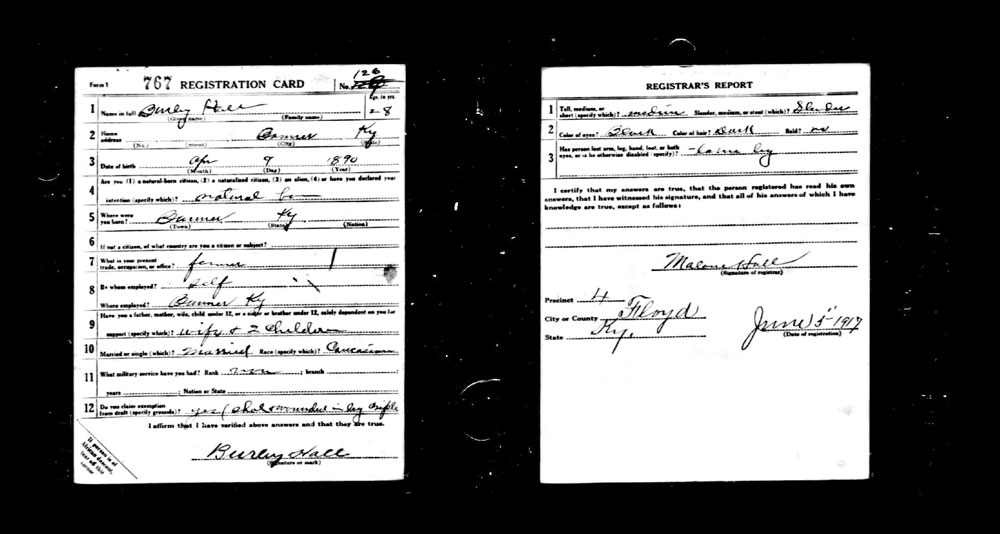 126
Form 1 767 REGISTRATION CARD No.
Age, in yrs.
1 Name in full Burley Hall 28
(Given name) (Family name)
2 Home address Banner Ky
(No.) (Street) (City) (State)
3 Date of birth Apr 9 1890
(Month) (Day) (Year)
4 Are you (1) a natural-born citizen, (2) a naturalized citizen, (3) an alien, (4) or have you declared your
intention (specify which)? natural b
5 Where were you born? Banner Ky
(Town) (State) (Nation)
6 If not a citizen, of what country are you a citizen or subject?
7 What is your present trade, occupation, or office? farmer
8 By whom employed? self
Where employed? Banner Ky
9 Have you a father, mother, wife, child under 12, or a sister or brother under 12, solely dependent on you for
support (specify which)? wife & 2 Children
10 Married or single (which)? Married Race (specify which)? Caucasian
11 What military service have you had? Rank non ; branch ;
years ; Nation or State
12 Do you claim exemption from draft (specify grounds)? yes (shot wounded in leg
I affirm that I have verified above answers and that they are true.
Burley Hall
(Signature or mark)
If person is of
African descent,
tear off this
corner
REGISTRAR'S REPORT
1 Tall, medium, or short (specify which)? medium Slender, medium, or stout (which)? Slender
2 Color of eyes? Color of hair? Dark Bald? no
3 Has person lost arm, leg, hand, foot, or both eyes, or is he otherwise disabled (specify)? lame leg
I certify that my answers are true, that the person registered has read his own
answers, that I have witnessed his signature, and that all of his answers of which I have
knowledge are true, except as follows:
Malone Hall
(Signature of registrar)
Precinct 4
City or County Floyd
State Ky.
June 5" 1917
(Date of registration)